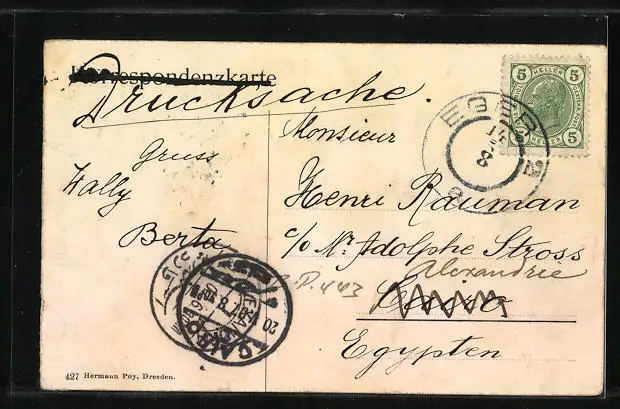 Korrespondenzkarte
Drucksache.
Gruss
Wally
Berta
Monsieur
Henri Rauman
c/o Mr. Adolphe Stross
Alexandrie
Cairo
Egypten
EGER
5 HELLER 5
5
427 Hermann Poy, Dresden.